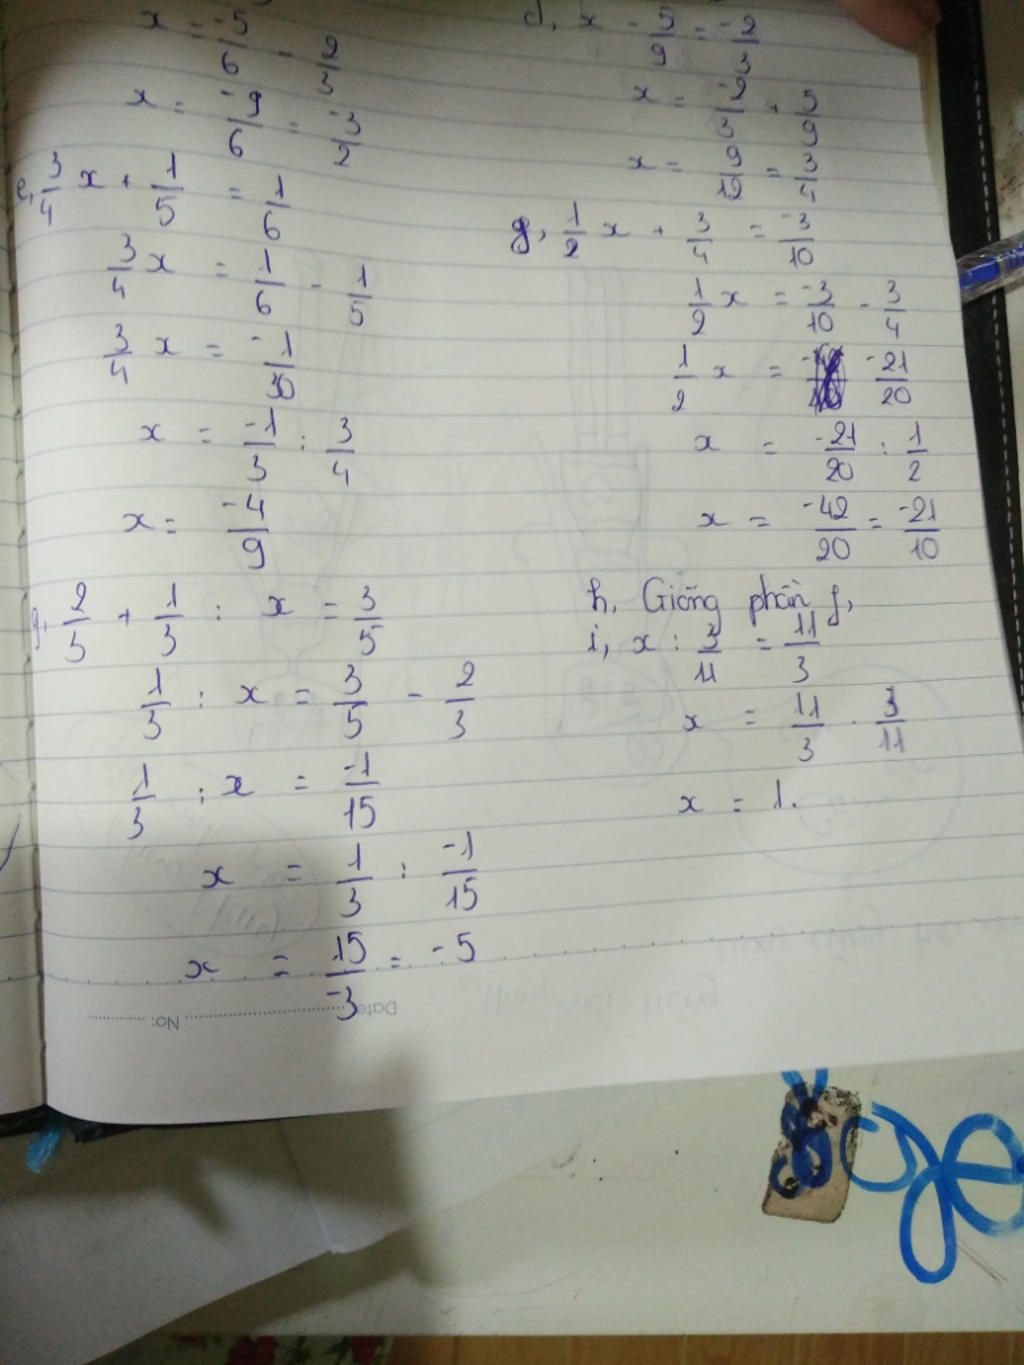 x = -5/6 - 2/3
x = -9/6 = -3/2
e, 3/4 x + 1/5 = 1/6
3/4 x = 1/6 - 1/5
3/4 x = -1/30
x = -1/3 : 3/4
x = -4/9
g, 2/5 + 1/3 : x = 3/5
1/3 : x = 3/5 - 2/3
1/3 : x = -1/15
x = 1/3 : -1/15
x = 15/-3 = -5
d, x - 5/9 = -2/3
x = -2/3 + 5/9
x = 9/12 = 3/4
g, 1/2 x + 3/4 = -3/10
1/2 x = -3/10 - 3/4
1/2 x = -21/20
x = -21/20 : 1/2
x = -42/20 = -21/10
h, Giống phần g,
i, x : 3/11 = 11/3
x = 11/3 . 3/11
x = 1.
No: Date: